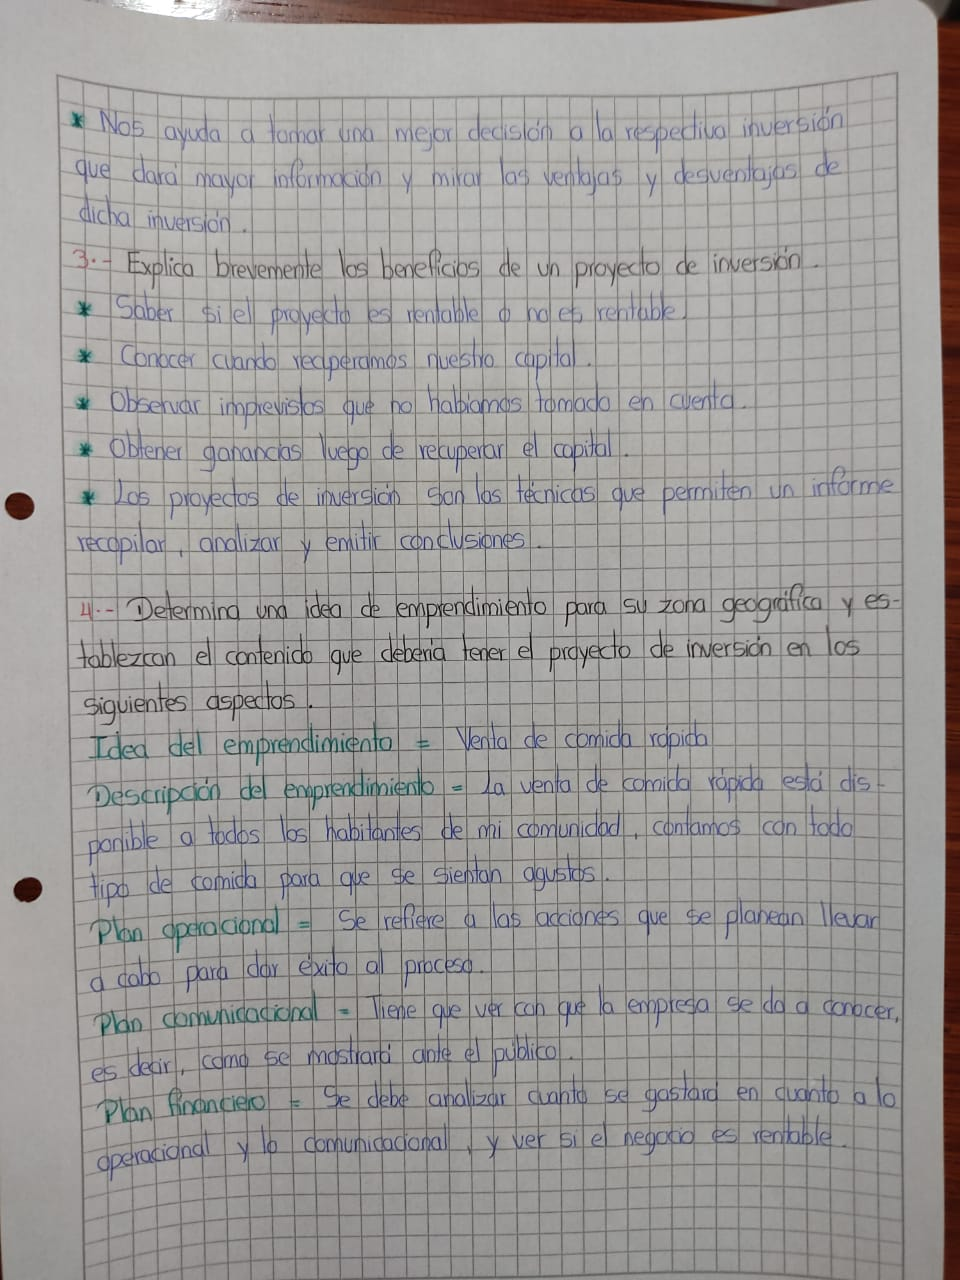 * Nos ayuda a tomar una mejor decisión a la respectiva inversión
que dará mayor información y mirar las ventajas y desventajas de
dicha inversión.
3.- Explica brevemente los beneficios de un proyecto de inversión.
* Saber si el proyecto es rentable o no es rentable
* Conocer cuando recuperamos nuestro capital.
* Observar imprevistos que no habíamos tomado en cuenta.
* Obtener ganancias luego de recuperar el capital.
* Los proyectos de inversión son las técnicas que permiten un informe
recopilar, analizar y emitir conclusiones.
4.- Determina una idea de emprendimiento para su zona geográfica y es-
tablezcan el contenido que debería tener el proyecto de inversión en los
siguientes aspectos.
Idea del emprendimiento = Venta de comida rápida
Descripción del emprendimiento = La venta de comida rápida está dis-
ponible a todos los habitantes de mi comunidad, contamos con todo
tipo de comida para que se sientan agustos.
Plan operacional = Se refiere a las acciones que se planean llevar
a cabo para dar éxito al proceso.
Plan comunicacional = Tiene que ver con que la empresa se da a conocer,
es decir, como se mostrará ante el público.
Plan financiero = Se debe analizar cuanto se gastará en cuanto a lo
operacional y lo comunicacional, y ver si el negocio es rentable.